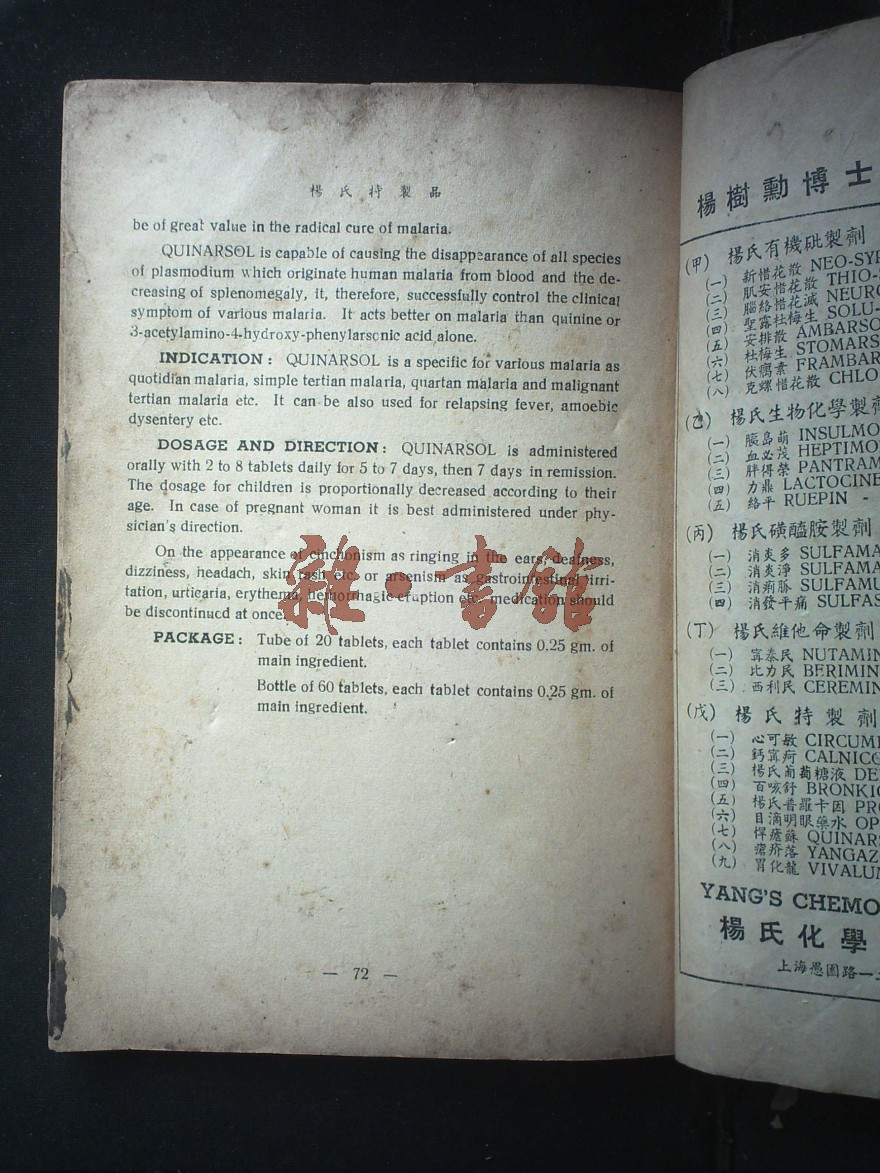 楊氏特製品
be of great value in the radical cure of malaria.
QUINARSOL is capable of causing the disappearance of all species
of plasmodium which originate human malaria from blood and the de-
creasing of splenomegaly, it, therefore, successfully control the clinical
symptom of various malaria. It acts better on malaria than quinine or
3-acetylamino-4-hydroxy-phenylarsonic acid alone.
INDICATION: QUINARSOL is a specific for various malaria as
quotidian malaria, simple tertian malaria, quartan malaria and malignant
tertian malaria etc. It can be also used for relapsing fever, amoebic
dysentery etc.
DOSAGE AND DIRECTION: QUINARSOL is administered
orally with 2 to 8 tablets daily for 5 to 7 days, then 7 days in remission.
The dosage for children is proportionally decreased according to their
age. In case of pregnant woman it is best administered under phy-
sician's direction.
On the appearance of cinchonism as ringing in the ears, deafness,
dizziness, headach, skin rash etc. or arsenism as gastrointestinal irri-
tation, urticaria, erythema, hemorrhagic eruption etc. medication should
be discontinued at once.
PACKAGE: Tube of 20 tablets, each tablet contains 0.25 gm. of
main ingredient.
Bottle of 60 tablets, each tablet contains 0.25 gm. of
main ingredient.
— 72 —
雜·書館
楊樹勳博士
(甲) 楊氏有機砒製劑
(一) 新惜花散 NEO-SYP
(二) 肌安惜花散 THIO-
(三) 腦絡惜花滅 NEURO
(四) 聖露杜梅生 SOLU-
(五) 安排散 AMBARSO
(六) 杜梅生 STOMARS
(七) 伏癘素 FRAMBAR
(八) 克螺惜花散 CHLO
(乙) 楊氏生物化學製劑
(一) 胰島萌 INSULMO
(二) 血必茂 HEPTIMO
(三) 胖得榮 PANTRAM
(四) 力鼎 LACTOCINE
(五) 絡平 RUEPIN -
(丙) 楊氏磺醯胺製劑
(一) 消炎多 SULFAMA
(二) 消炎淨 SULFAMA
(三) 消痢脈 SULFAMU
(四) 消發平痛 SULFAS
(丁) 楊氏維他命製劑
(一) 寗泰民 NUTAMIN
(二) 比力民 BERIMIN
(三) 西利民 CEREMIN
(戊) 楊氏特製劑
(一) 心可敏 CIRCUM
(二) 鈣寗疴 CALNICO
(三) 楊氏葡萄糖液 DE
(四) 百咳舒 BRONKIO
(五) 楊氏普羅卡因 PRO
(六) 目滴明眼藥水 OP
(七) 悍瘧蘇 QUINARS
(八) 瘡疥落 YANGAZ
(九) 胃化龍 VIVALUM
YANG'S CHEMO
楊氏化學
上海愚園路一